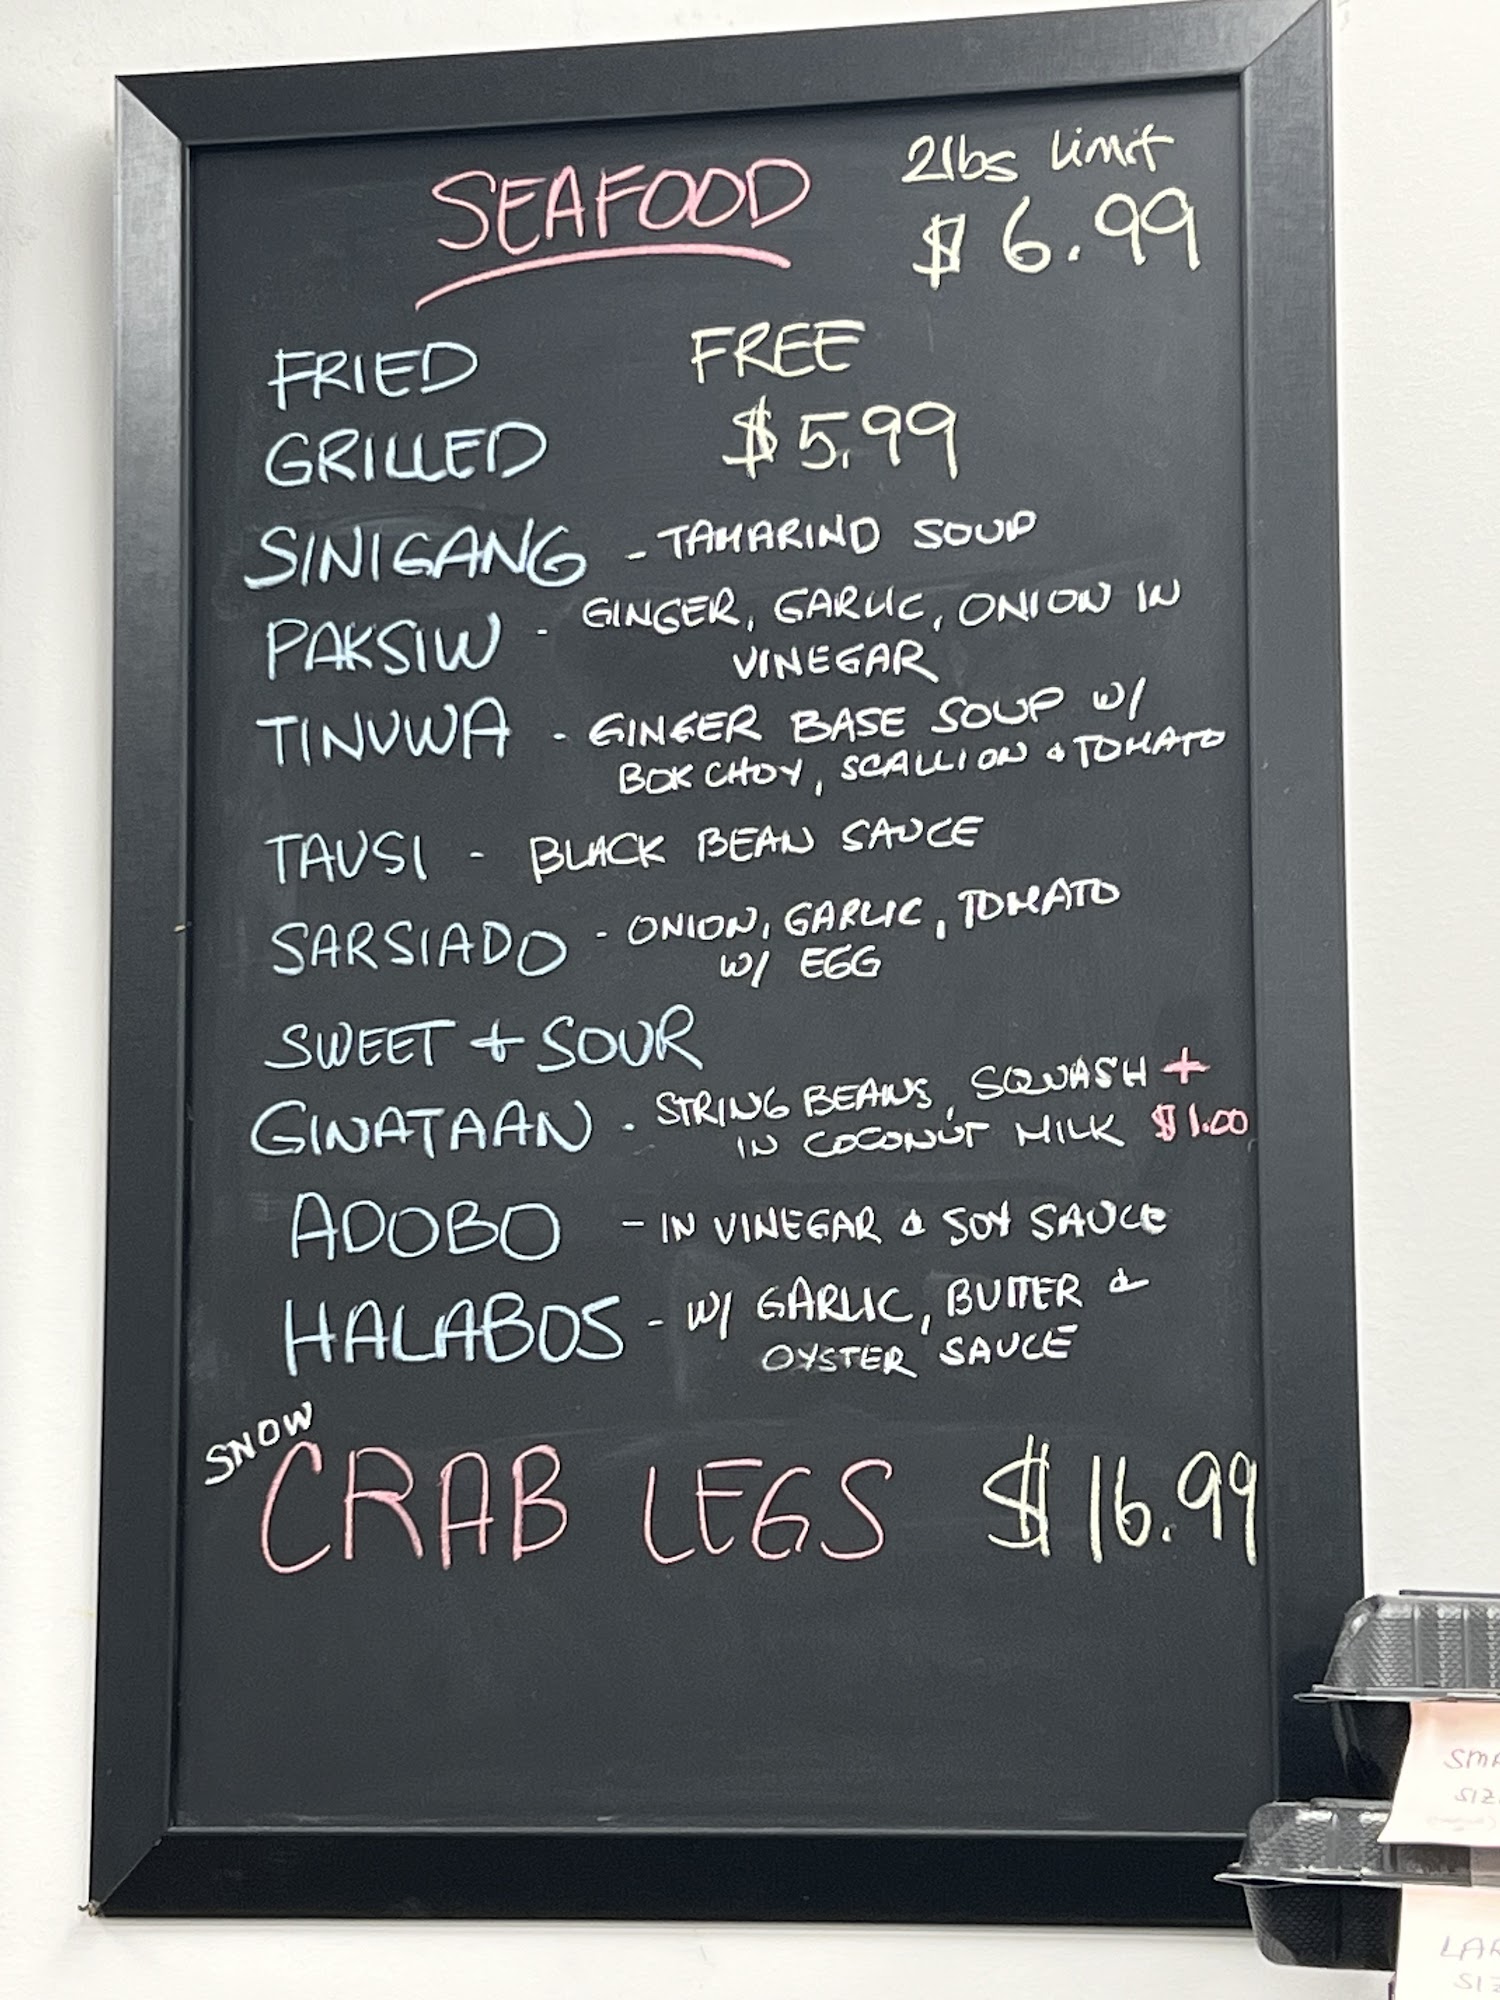 SEAFOOD
2lbs limit
$6.99
FRIED FREE
GRILLED $5.99
SINIGANG - TAMARIND SOUP
PAKSIW - GINGER, GARLIC, ONION IN
VINEGAR
TINUWA - GINGER BASE SOUP W/
BOK CHOY, SCALLION & TOMATO
TAUSI - BLACK BEAN SAUCE
SARSIADO - ONION, GARLIC, TOMATO
W/ EGG
SWEET + SOUR
GINATAAN - STRING BEANS, SQUASH +
IN COCONUT MILK $1.00
ADOBO - IN VINEGAR & SOY SAUCE
HALABOS - W/ GARLIC, BUTTER &
OYSTER SAUCE
SNOW
CRAB LEGS $16.99